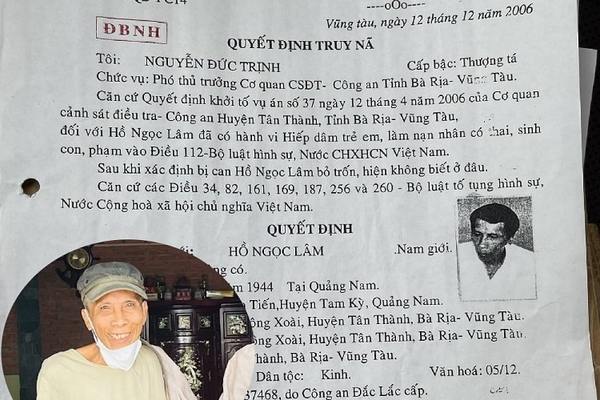 ----oOo----
Vũng tàu, ngày 12 tháng 12 năm 2006
ĐBNH
QUYẾT ĐỊNH TRUY NÃ
Tôi: NGUYỄN ĐỨC TRỊNH Cấp bậc: Thượng tá
Chức vụ: Phó thủ trưởng Cơ quan CSĐT- Công an Tỉnh Bà Rịa- Vũng Tàu.
Căn cứ Quyết định khởi tố vụ án số 37 ngày 12 tháng 4 năm 2006 của Cơ quan
cảnh sát điều tra- Công an Huyện Tân Thành, Tỉnh Bà Rịa- Vũng Tàu,
đối với Hồ Ngọc Lâm đã có hành vi Hiếp dâm trẻ em, làm nạn nhân có thai, sinh
con, phạm vào Điều 112-Bộ luật hình sự, Nước CHXHCN Việt Nam.
Sau khi xác định bị can Hồ Ngọc Lâm bỏ trốn, hiện không biết ở đâu.
Căn cứ các Điều 34, 82, 161, 169, 187, 256 và 260 - Bộ luật tố tụng hình sự,
Nước Cộng hoà xã hội chủ nghĩa Việt Nam.
QUYẾT ĐỊNH
HỒ NGỌC LÂM .Nam giới.
có.
1944 Tại Quảng Nam.
Tiến,Huyện Tam Kỳ, Quảng Nam.
Xoài, Huyện Tân Thành, Bà Rịa- Vũng Tàu.
Xoài, Huyện Tân Thành, Bà Rịa- Vũng Tàu.
Thành, Bà Rịa- Vũng Tàu.
Dân tộc: Kinh. Văn hoá: 05/12.
37468, do Công an Đắc Lắc cấp.